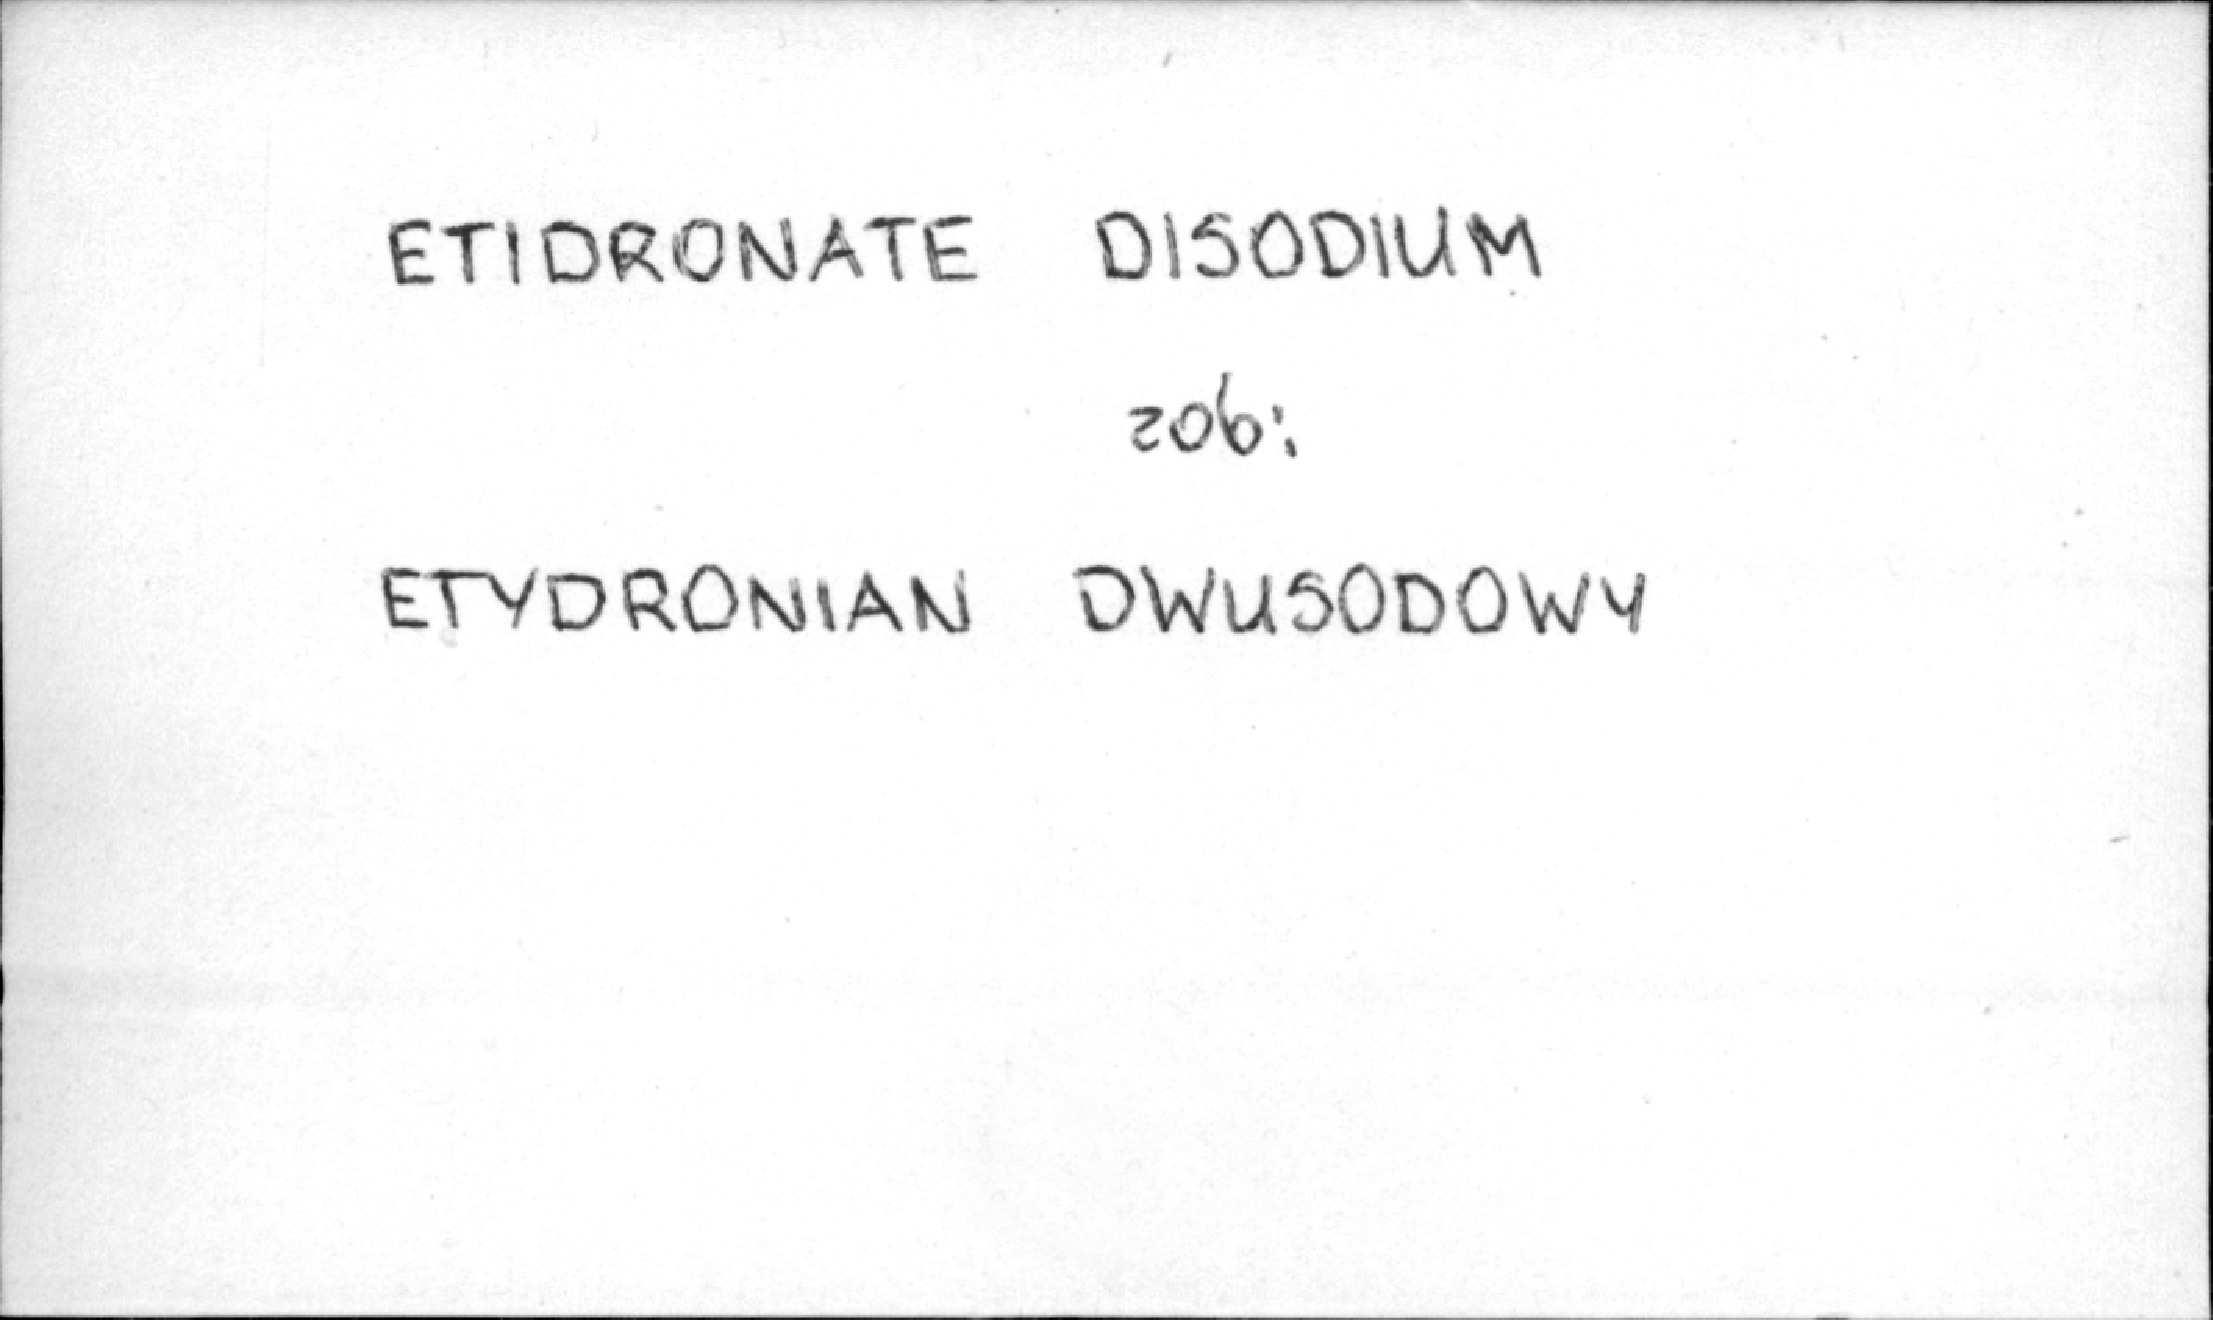 ETIDRONATE DISODIUM
zob:
ETYDRONIAN DWUSODOWY